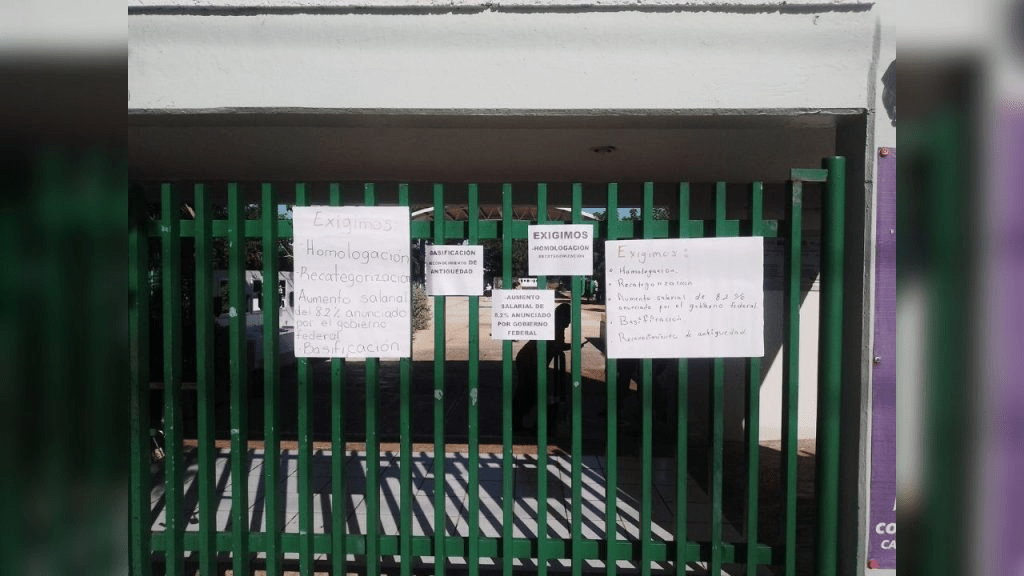 Exigimos:
-Homologación
-Recategorizacion
Aumento salarial
del 8.2% anunciado
por el gobierno
federal
-Basificación
BASIFICACIÓN
RECONOCIMIENTO DE
ANTIGUEDAD
EXIGIMOS
-HOMOLOGACIÓN
RECATEGORIZACIÓN
-AUMENTO
SALARIAL DE
8.2% ANUNCIADO
POR GOBIERNO
FEDERAL
Exigimos:
• Homologación.
• Recategorización
• Aumento salarial de 8.2%
anunciado por el gobierno federal.
• Basificación.
• Reconocimiento de antiguedad.
CO
CA